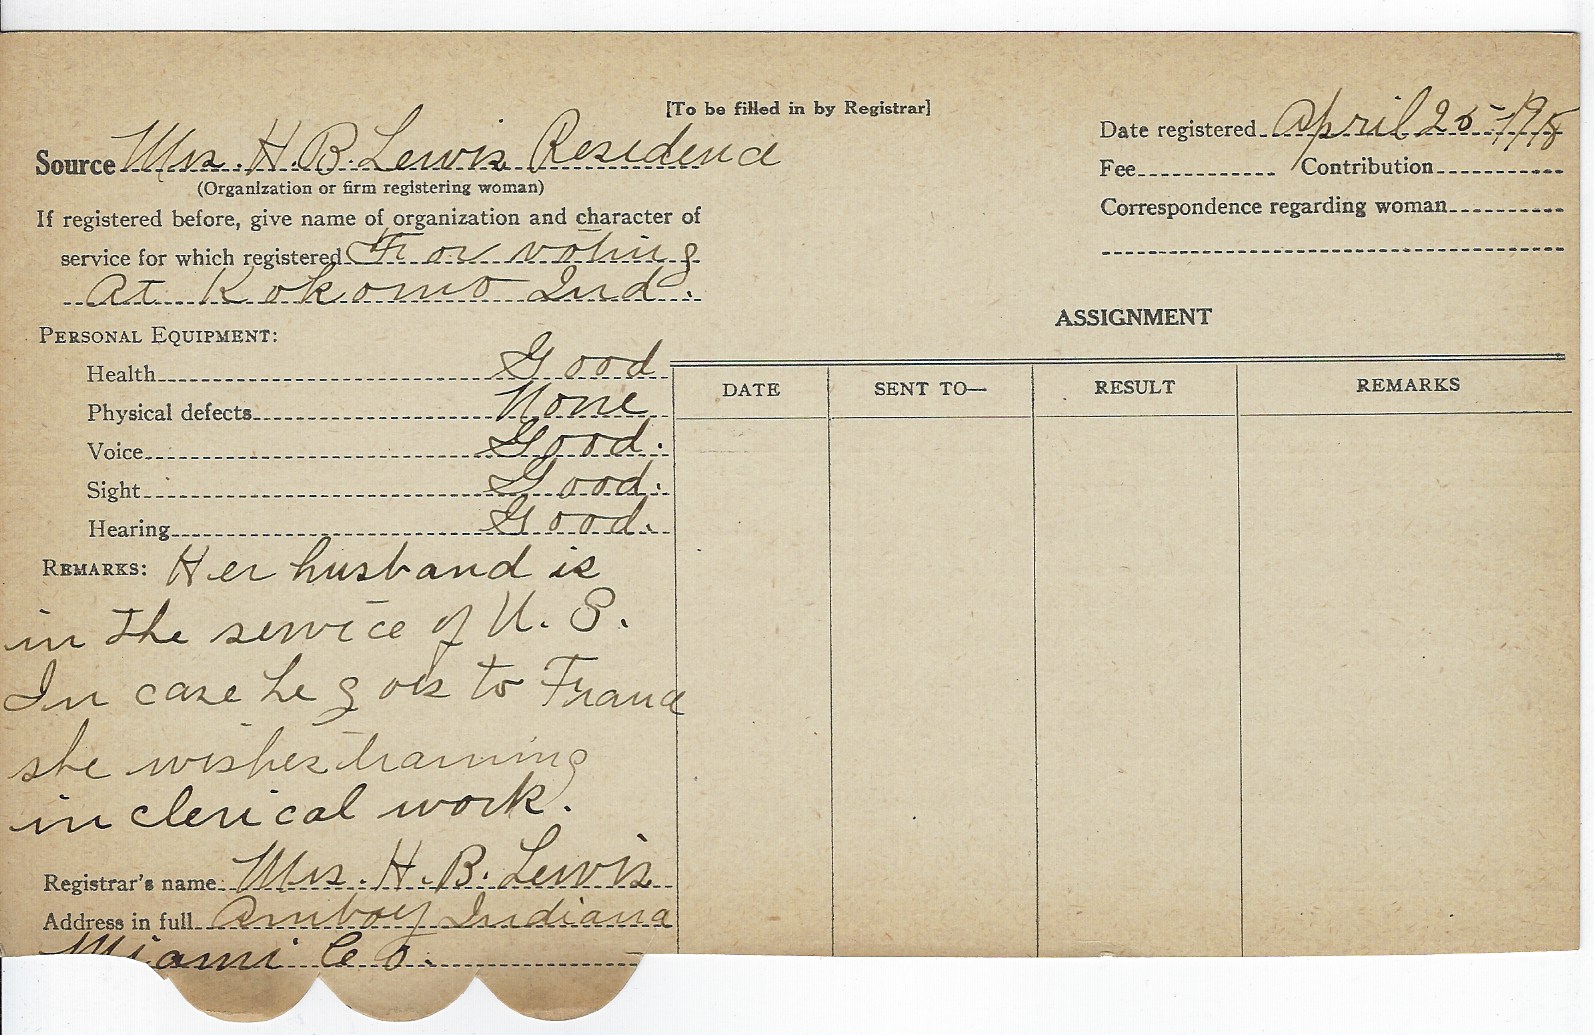 [To be filled in by Registrar]
Source Mrs. H. B. Lewis Residence
(Organization or firm registering woman)
If registered before, give name of organization and character of
service for which registered For voting
At Kokomo Ind.
PERSONAL EQUIPMENT:
Health Good
Physical defects None
Voice Good.
Sight Good.
Hearing Good.
REMARKS: Her husband is
in the service of U. S.
In case he goes to France
she wishes training
in clerical work.
Registrar's name Mrs. H. B. Lewis
Address in full Amboy Indiana
Miami Co.
Date registered April 25-1918
Fee Contribution
Correspondence regarding woman
ASSIGNMENT
DATE SENT TO— RESULT REMARKS